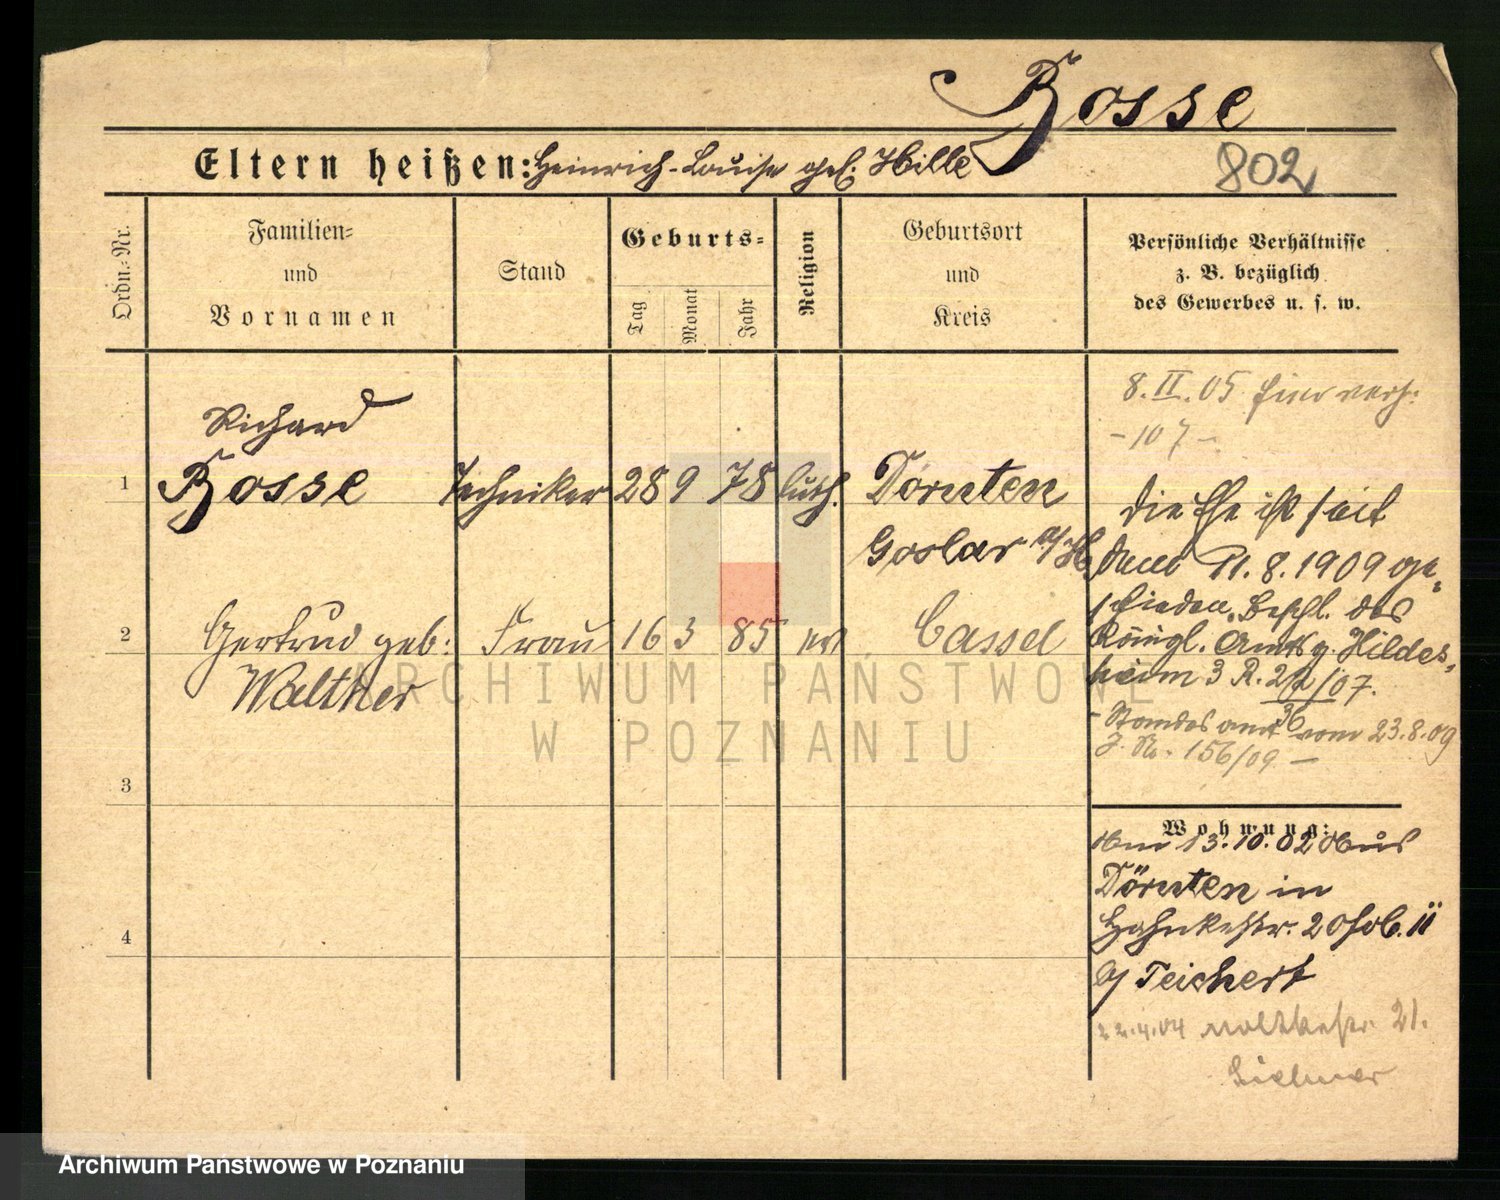 Bosse
Eltern heißen: Heinrich - Louise geb. Hille
802
Ordn.-Nr.
Familien-
und
Vornamen
Stand
Geburts-
Tag
Monat
Jahr
Religion
Geburtsort
und
Kreis
Persönliche Verhältnisse
z. B. bezüglich
des Gewerbes u. s. w.
8. II. 05 hier verh.
- 107 -
Richard
1 Bosse Techniker 28 9 78 luth. Dörnten
Goslar a/H
2 Gertrud geb: Frau 16 3 85 ev Cassel
Walther
Die Ehe ist seit
dem 11.8.1909 ge-
schieden. Beschl. des
Königl. Amtsg. Hildes-
heim 3 R. 22/07.
36
- Standesamt vom 23.8.09
J. No. 156/09 -
3
4
Wohnung:
Am 13.10.02 aus
Dörnten in
20 II
b/ Teichert
22.4.04 Moltkestr. 21.
ARCHIWUM PAŃSTWOWE
W POZNANIU
Archiwum Państwowe w Poznaniu